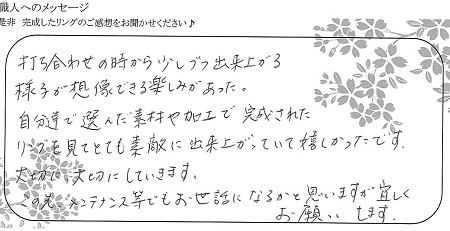 職人へのメッセージ
是非 完成したリングのご感想をお聞かせください♪
打ち合わせの時から少しづつ出来上がる
様子が想像できる楽しみがあった。
自分達で選んだ素材や加工で完成された
リングを見てとても素敵に出来上がっていて嬉しかったです。
大切に、大切にしていきます。
この先、メンテナンス等でもお世話になるかと思いますが宜しく
お願い します。